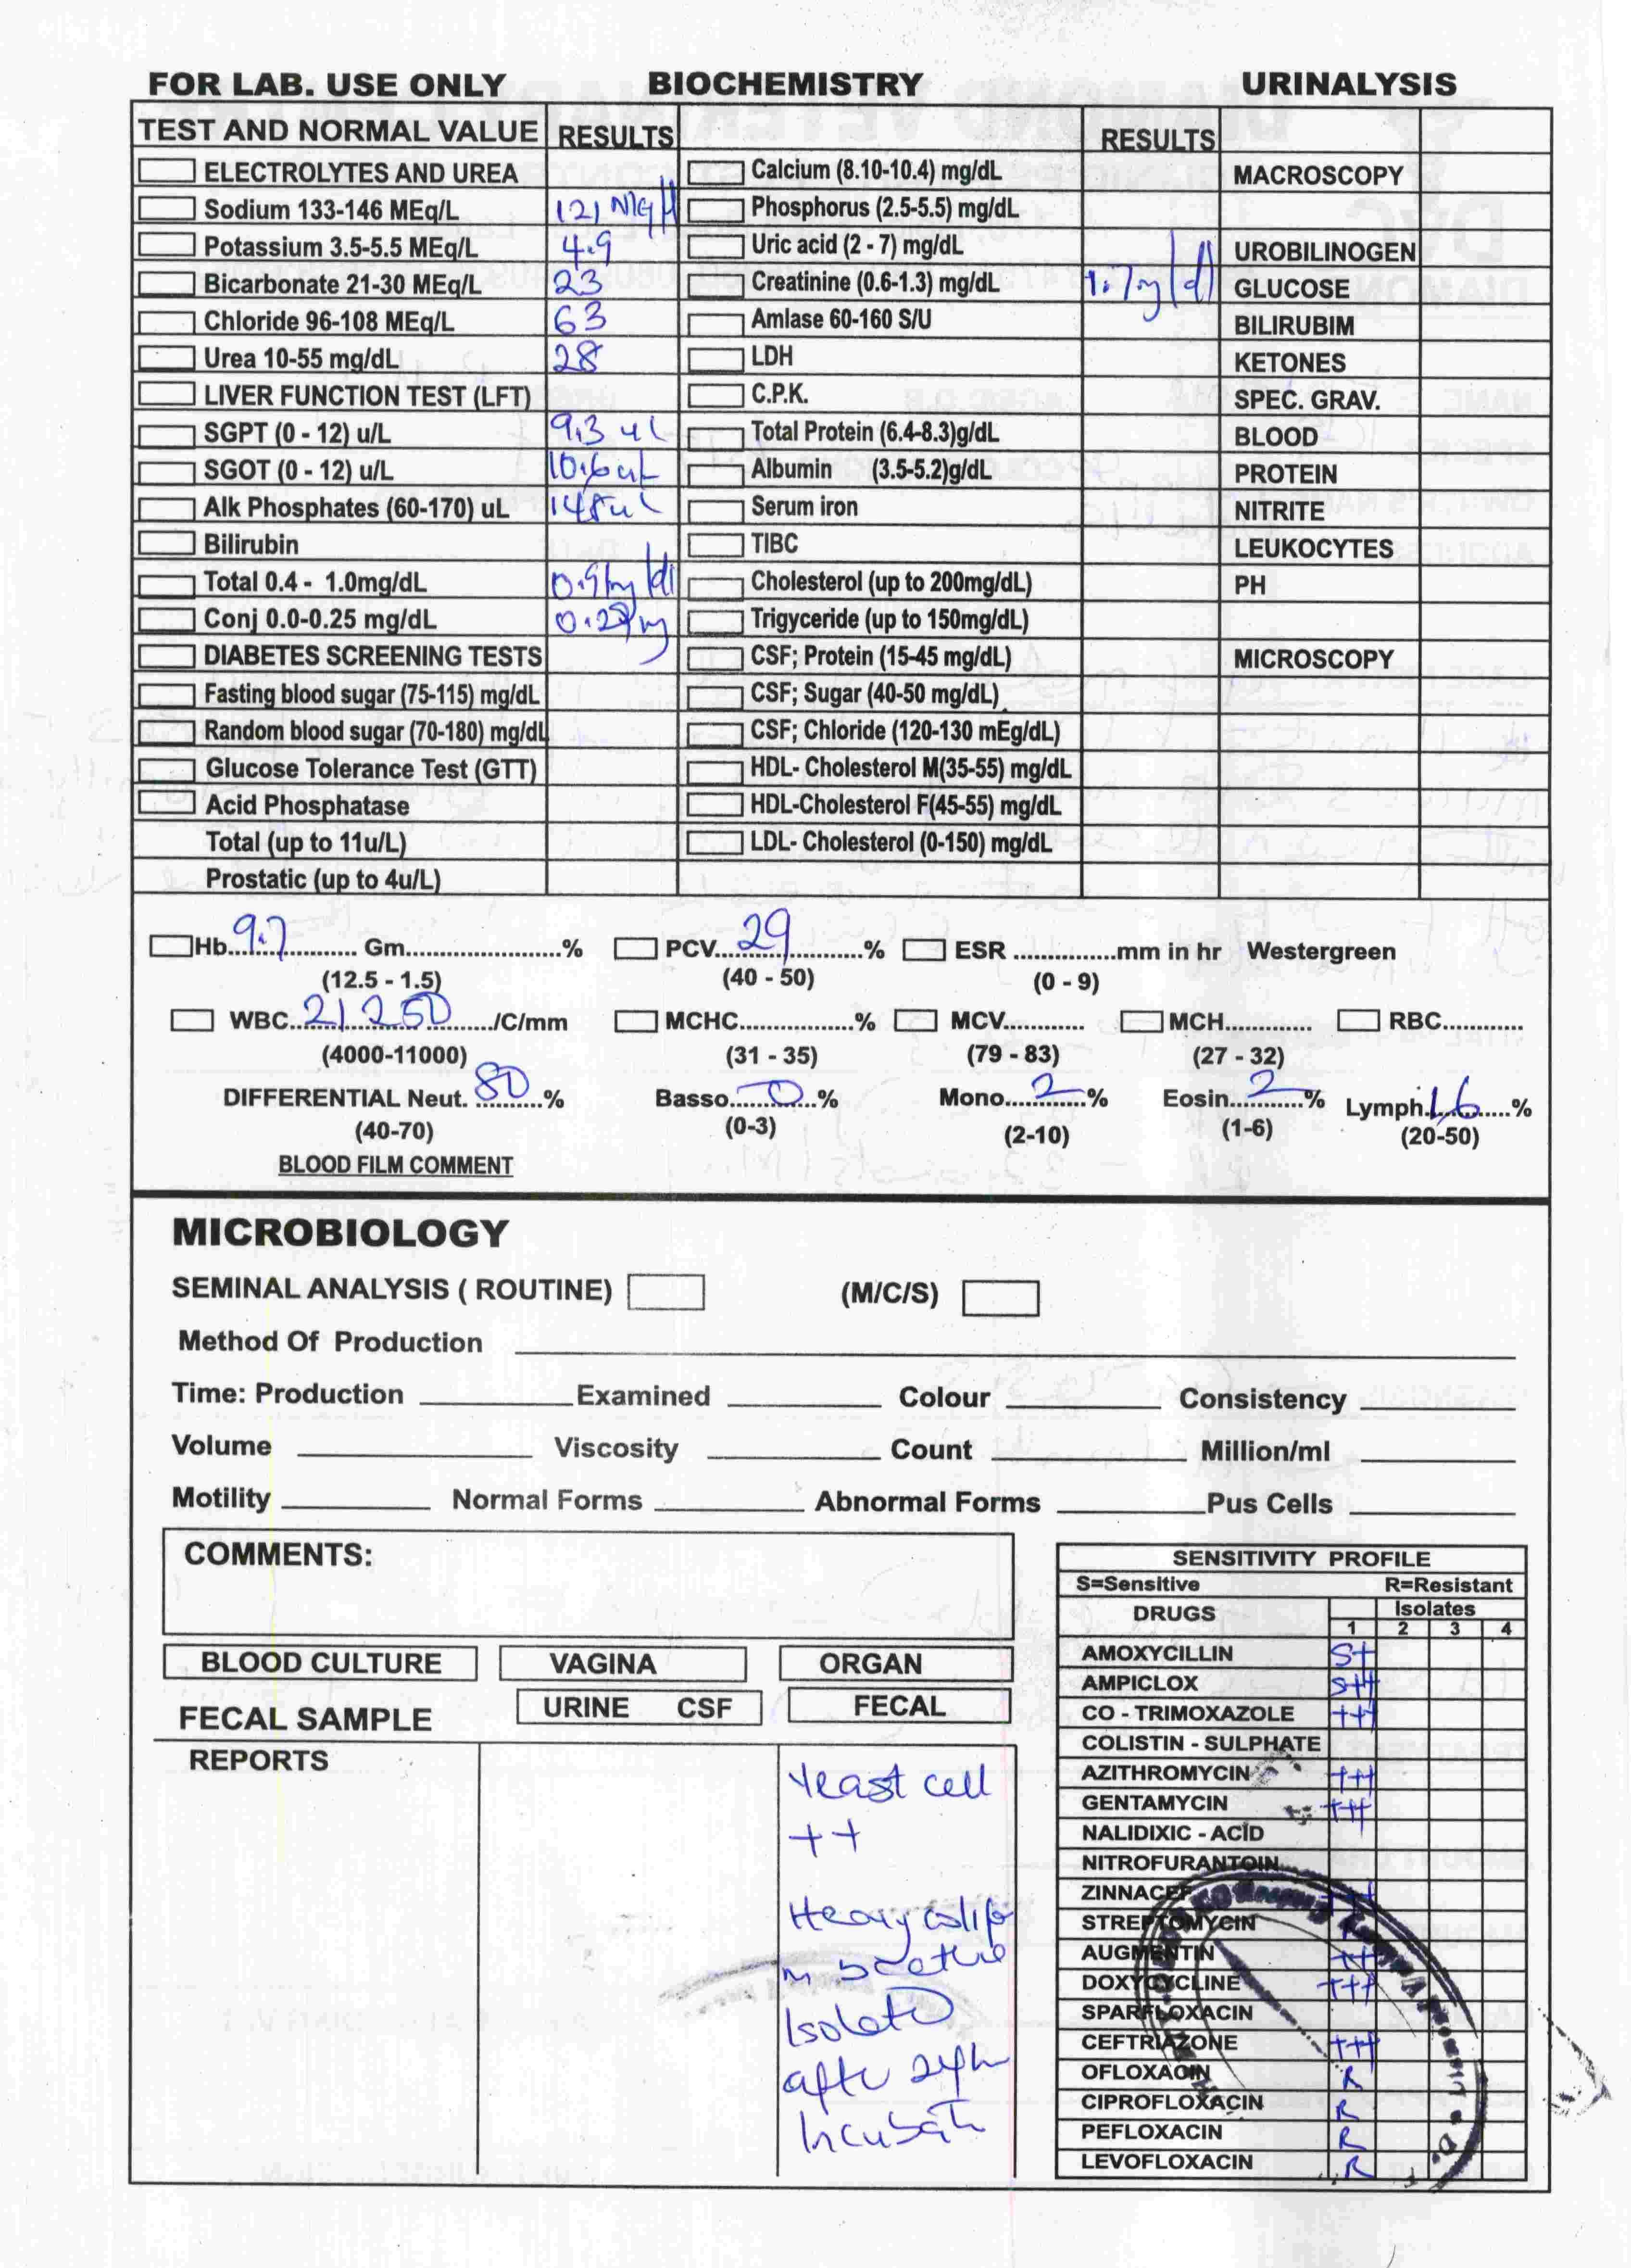 FOR LAB. USE ONLY BIOCHEMISTRY URINALYSIS
TEST AND NORMAL VALUE RESULTS RESULTS
ELECTROLYTES AND UREA Calcium (8.10-10.4) mg/dL MACROSCOPY
Sodium 133-146 MEq/L 121 Phosphorus (2.5-5.5) mg/dL
Potassium 3.5-5.5 MEq/L 4.9 Uric acid (2 - 7) mg/dL UROBILINOGEN
Bicarbonate 21-30 MEq/L 23 Creatinine (0.6-1.3) mg/dL GLUCOSE
Chloride 96-108 MEq/L 63 Amlase 60-160 S/U BILIRUBIM
Urea 10-55 mg/dL 28 LDH KETONES
LIVER FUNCTION TEST (LFT) C.P.K. SPEC. GRAV.
SGPT (0 - 12) u/L 9.3 uL Total Protein (6.4-8.3)g/dL BLOOD
SGOT (0 - 12) u/L 10.6 uL Albumin (3.5-5.2)g/dL PROTEIN
Alk Phosphates (60-170) uL 148 uL Serum iron NITRITE
Bilirubin TIBC LEUKOCYTES
Total 0.4 - 1.0mg/dL 0.9mg/dl Cholesterol (up to 200mg/dL) PH
Conj 0.0-0.25 mg/dL Trigyceride (up to 150mg/dL)
DIABETES SCREENING TESTS CSF; Protein (15-45 mg/dL) MICROSCOPY
Fasting blood sugar (75-115) mg/dL CSF; Sugar (40-50 mg/dL)
Random blood sugar (70-180) mg/dL CSF; Chloride (120-130 mEg/dL)
Glucose Tolerance Test (GTT) HDL- Cholesterol M(35-55) mg/dL
Acid Phosphatase HDL-Cholesterol F(45-55) mg/dL
Total (up to 11u/L) LDL- Cholesterol (0-150) mg/dL
Prostatic (up to 4u/L)
Hb 9.7 Gm % PCV 29 % ESR mm in hr Westergreen
(12.5 - 1.5) (40 - 50) (0 - 9)
WBC 21250 /C/mm MCHC % MCV MCH RBC
(4000-11000) (31 - 35) (79 - 83) (27 - 32)
DIFFERENTIAL Neut. 80 % Basso 0 % Mono 2 % Eosin 2 % Lymph 16 %
(40-70) (0-3) (2-10) (1-6) (20-50)
BLOOD FILM COMMENT
MICROBIOLOGY
SEMINAL ANALYSIS ( ROUTINE) (M/C/S)
Method Of Production
Time: Production Examined Colour Consistency
Volume Viscosity Count Million/ml
Motility Normal Forms Abnormal Forms Pus Cells
COMMENTS:
BLOOD CULTURE VAGINA ORGAN
FECAL SAMPLE URINE CSF FECAL
REPORTS
Yeast cell
++
Heavy colifo
m
Isolated
after 24h
Incubat
SENSITIVITY PROFILE
S=Sensitive R=Resistant
DRUGS Isolates
1 2 3 4
AMOXYCILLIN S+
AMPICLOX S++
CO - TRIMOXAZOLE +++
COLISTIN - SULPHATE
AZITHROMYCIN +++
GENTAMYCIN +++
NALIDIXIC - ACID
NITROFURANTOIN
ZINNACEF
STREPTOMYCIN
AUGMENTIN +++
DOXYCYCLINE +++
SPARFLOXACIN
CEFTRIAZONE +++
OFLOXACIN R
CIPROFLOXACIN R
PEFLOXACIN R
LEVOFLOXACIN R